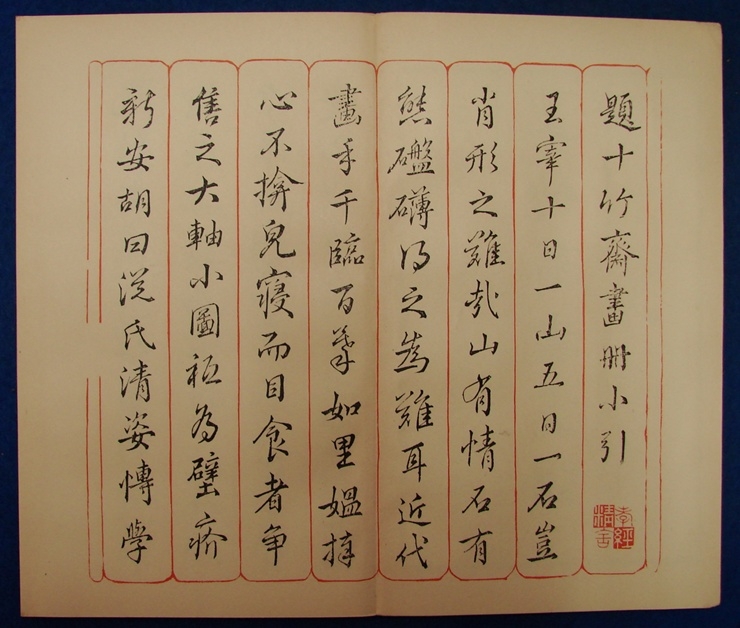 題十竹齋畫冊小引
王宰十日一山五日一石豈
肖形之難哉山有情石有
態礴得之為難耳近代
畫手千臨百摹如里媼捧
心不揜皃寢而目食者爭
售之大軸小圖祇為壁疥
新安胡曰從氏清姿愽學